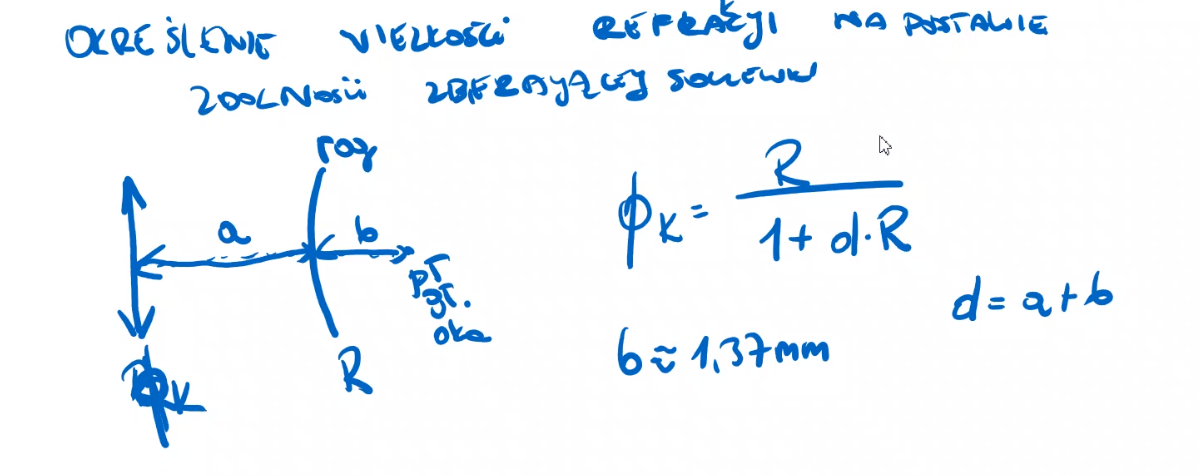 OKREŚLENIE WIELKOŚCI REFRAKCJI NA PODSTAWIE
ZDOLNOŚCI ZBIERAJĄCEJ SOCZEWKI
rog
a
b
PŁ
gł.
oka
R
ϕK
ϕK = R / (1 + d·R)
d = a + b
b ≈ 1,37 mm